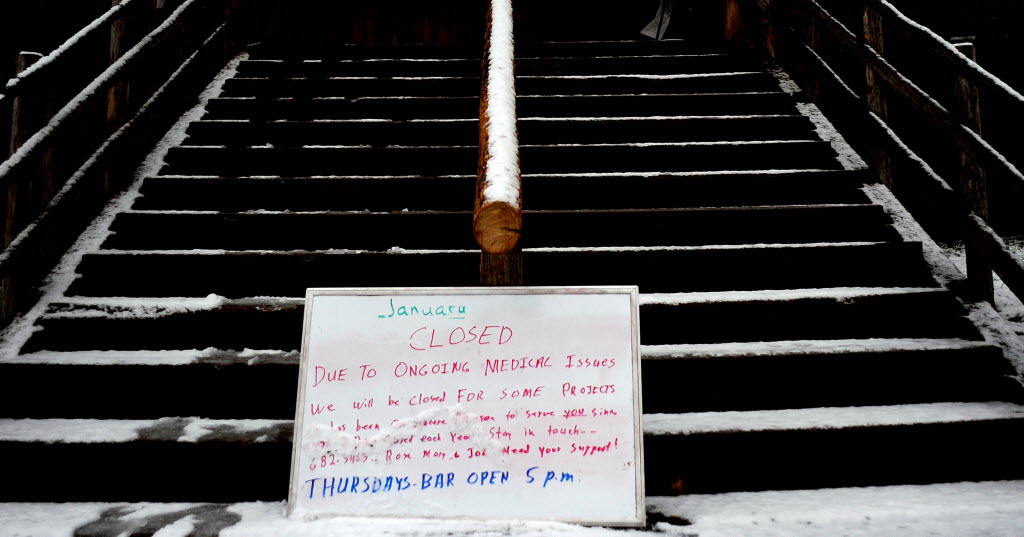 January
CLOSED
DUE TO ONGOING MEDICAL ISSUES
We will be closed FOR SOME PROJECTS
has been to serve you
each Year Stay in touch--
682- Rose Mary & Joe Need your support!
THURSDAYS-BAR OPEN 5 p.m.